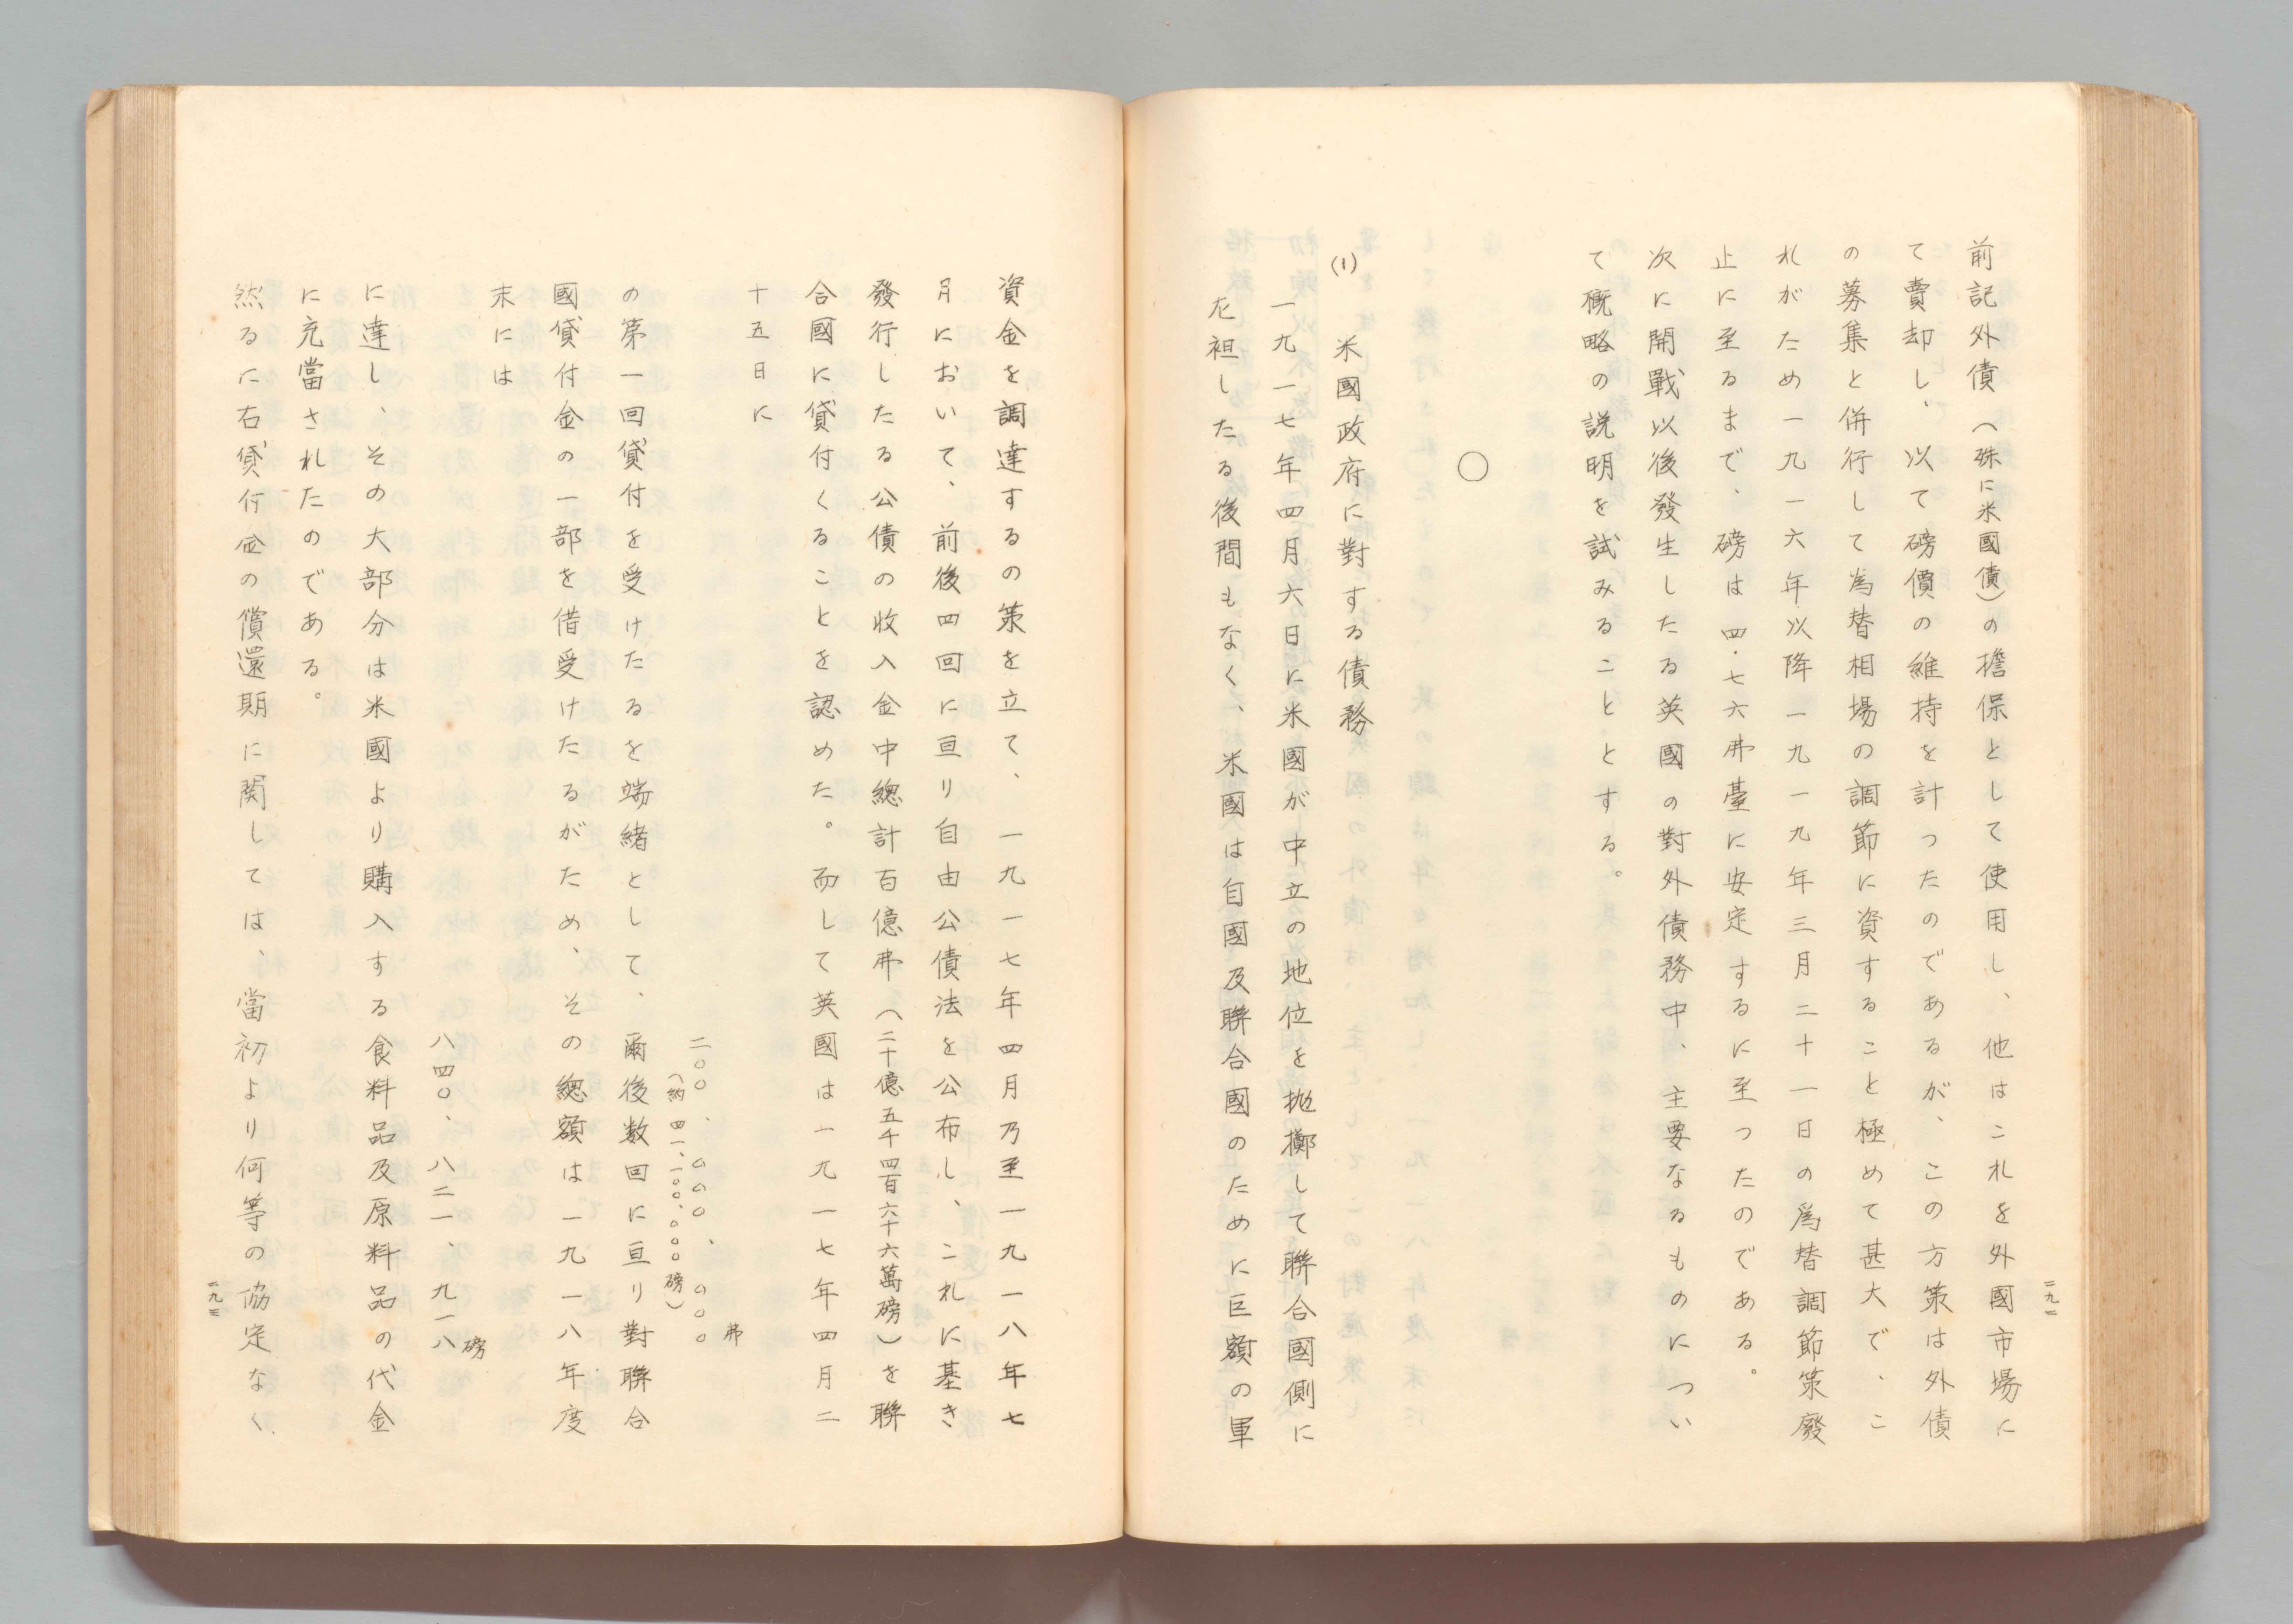 前記外債（殊に米國債）の擔保として使用し、他はこれを外國市場に
て賣却し、以て磅價の維持を計つたのであるが、この方策は外債
の募集と併行して為替相場の調節に資すること極めて甚大で、こ
れがため一九一六年以降一九一九年三月二十一日の為替調節策廢
止に至るまで、磅は四・七六弗臺に安定するに至つたのである。
次に開戰以後發生したる英國の對外債務中、主要なるものについ
て概略の説明を試みることとする。
○
(1) 米國政府に對する債務
一九一七年四月六日に米國が中立の地位を抛擲して聯合國側に
左袒したる後間もなく、米國は自國及聯合國のために巨額の軍
二九一
資金を調達するの策を立て、一九一七年四月乃至一九一八年七
月において、前後四回に亘り自由公債法を公布し、これに基き
發行したる公債の收入金中總計百億弗（二十億五千四百六十六萬磅）を聯
合國に貸付くることを認めた。而して英國は一九一七年四月二
十五日に
二〇〇、〇〇〇、〇〇〇弗
（約四一、一〇〇、〇〇〇磅）
の第一回貸付を受けたるを端緒として、爾後数回に亘り對聯合
國貸付金の一部を借受けたるがため、その總額は一九一八年度
末には
八四〇、八二一、九一八磅
に達し、その大部分は米國より購入する食料品及原料品の代金
に充當されたのである。
然るに右貸付金の償還期に関しては、當初より何等の協定なく
二九三